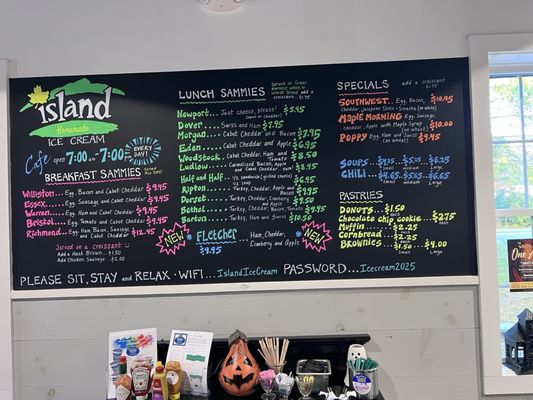 island
Homemade
ICE CREAM
Cafe open 7:00 - 7:00 EVERY DAY!
BREAKFAST SAMMIES
Williston... Egg, Bacon and Cabot Cheddar $9.45
Essex... Egg, Sausage, and Cabot Cheddar $9.45
Warren... Egg, Ham and Cabot Cheddar $9.45
Bristol... Egg, Tomato and Cabot Cheddar $9.45
Richmond... Egg, Ham, Bacon, Sausage and Cabot Cheddar $12.95
Served on a croissant
Add a Hash Brown $1.50
Add Chicken Sausage $2.00
LUNCH SAMMIES
Served on
white or Wheat Bread
Newport... Just cheese, please! $5.95
Dover... Swiss and Ham $7.95
Morgan... Cabot Cheddar and Bacon $7.95
Eden... Cabot Cheddar and Apple $6.95
Woodstock... Cabot Cheddar, Ham, and Tomato $8.50
Ludlow... Caramelized Bacon, Apple and Cabot Cheddar $8.95
Half and Half... 1/2 sandwich (grilled cheese) 1/2 soup $6.95
Ripton... Turkey, Cheddar, Apple and Bacon $9.95
Dorset... Turkey, Cheddar, Cranberry and Apple $9.50
Bethel... Turkey, Cheddar, Bacon, Tomato $9.95
Barton... Turkey, Ham and Swiss $10.50
NEW! Fletcher... Ham, Cheddar, Cranberry and Apple NEW!
$9.95
SPECIALS add a croissant $1.75
SOUTHWEST... Egg, Bacon, Cheddar, Jalapenos Slices + Sriracha (on wheat) $10.95
MAPLE MORNING Egg, Sausage, Cheddar, Apple with Maple Syrup (on wheat) $10.00
POPPY... Egg, Ham and Swiss (on wheat) $9.45
SOUPS... $4.25... $5.25... $6.25
small medium Large
CHILI... $4.65... $5.65... $6.65
small medium Large
PASTRIES
DONUTS... $1.50
Chocolate chip cookie... $2.75
Muffin... $2.25
Cornbread... $2.25
Brownies... $1.50... $4.00
small Large
PLEASE SIT, STAY AND RELAX · WIFI... IslandIceCream PASSWORD... Icecream2025